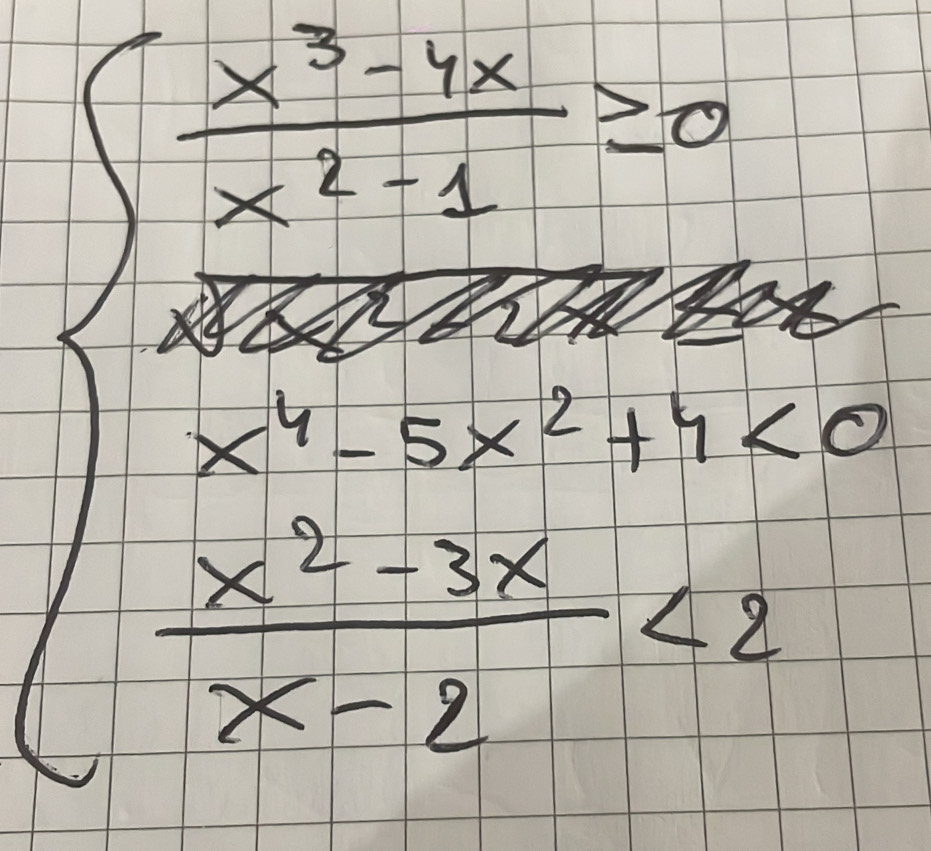 x³ - 4x
x² - 1
≥ 0
x⁴ - 5x² + 4 < 0
x² - 3x
x - 2
< 2